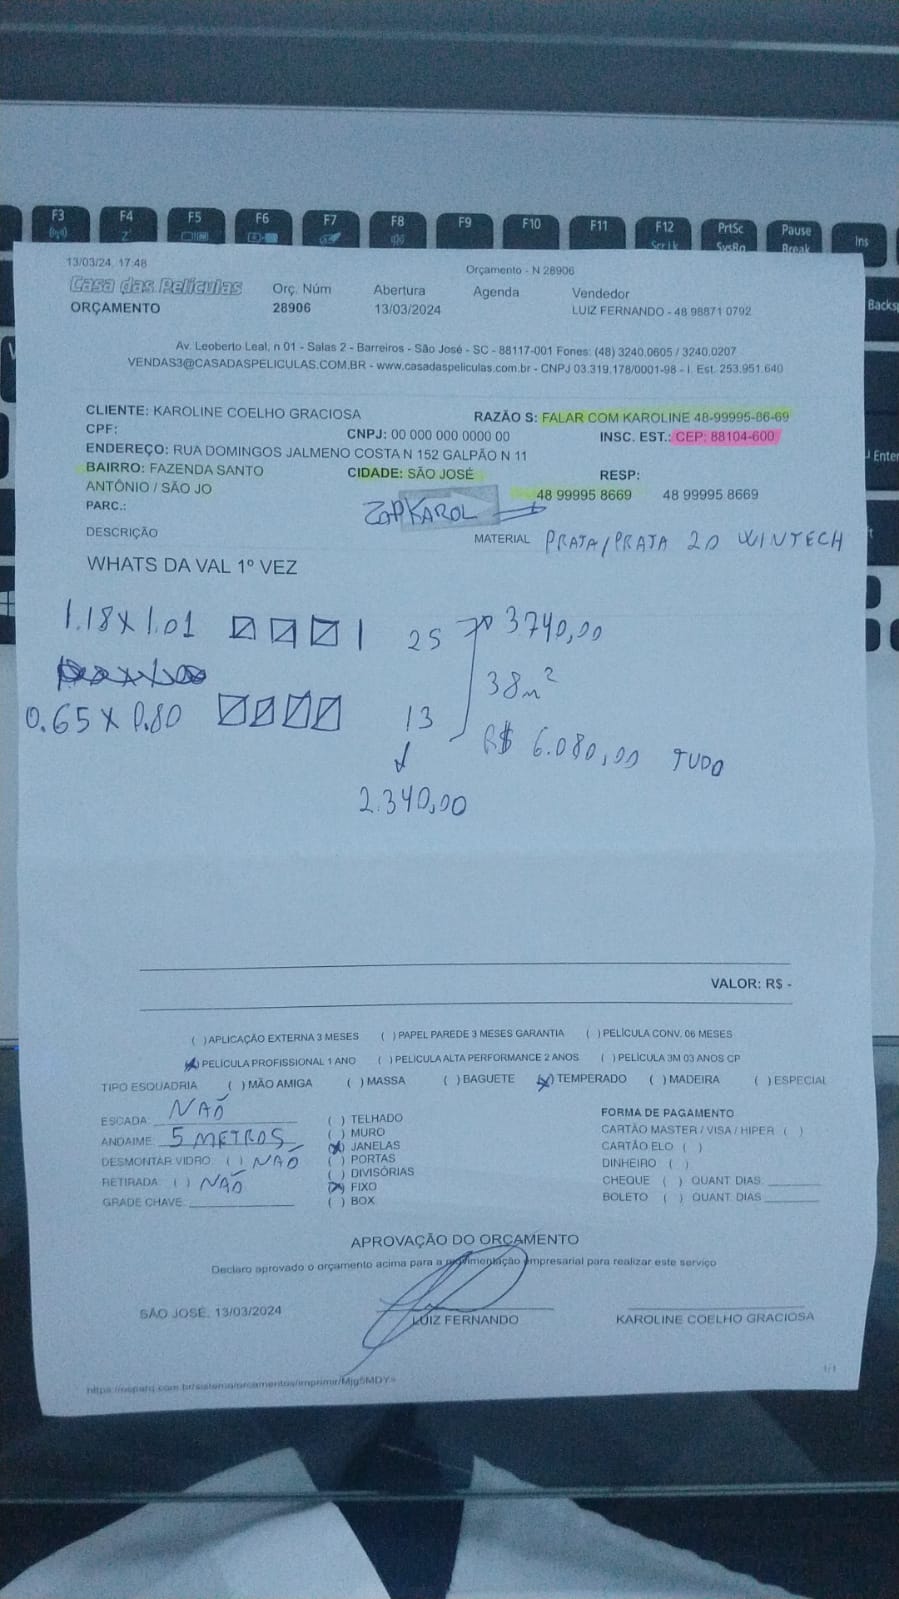 F3 F4 F5 F6 F7 F8 F9 F10 F11 F12 PrtSc Pause Ins
Scr Lk SysRq Break
Backsp
Enter
13/03/24, 17:48 Orçamento - N 28906
Casa das Películas Orç. Núm Abertura Agenda Vendedor
ORÇAMENTO 28906 13/03/2024 LUIZ FERNANDO - 48 98871 0792
Av. Leoberto Leal, n 01 - Salas 2 - Barreiros - São José - SC - 88117-001 Fones: (48) 3240.0605 / 3240.0207
VENDAS3@CASADASPELICULAS.COM.BR - www.casadaspeliculas.com.br - CNPJ 03.319.178/0001-98 - I. Est. 253.951.640
CLIENTE: KAROLINE COELHO GRACIOSA RAZÃO S: FALAR COM KAROLINE 48-99995-86-69
CPF: CNPJ: 00 000 000 0000 00 INSC. EST.: CEP: 88104-600
ENDEREÇO: RUA DOMINGOS JALMENO COSTA N 152 GALPÃO N 11
BAIRRO: FAZENDA SANTO CIDADE: SÃO JOSÉ RESP:
ANTÔNIO / SÃO JO 48 99995 8669 48 99995 8669
PARC.: ZAP KAROL
DESCRIÇÃO MATERIAL PRATA/PRATA 20 WINTECH
WHATS DA VAL 1º VEZ
1.18 x 1.01 25 3740,00
38m²
0.65 x 0.80 13 R$ 6.080,00 TUDO
2.340,00
VALOR: R$ -
( ) APLICAÇÃO EXTERNA 3 MESES ( ) PAPEL PAREDE 3 MESES GARANTIA ( ) PELÍCULA CONV. 06 MESES
(x) PELÍCULA PROFISSIONAL 1 ANO ( ) PELÍCULA ALTA PERFORMANCE 2 ANOS ( ) PELÍCULA 3M 03 ANOS CP
TIPO ESQUADRIA ( ) MÃO AMIGA ( ) MASSA ( ) BAGUETE (x) TEMPERADO ( ) MADEIRA ( ) ESPECIAL
ESCADA: NÃO ( ) TELHADO FORMA DE PAGAMENTO
ANDAIME: 5 METROS ( ) MURO CARTÃO MASTER / VISA / HIPER ( )
DESMONTAR VIDRO: ( ) NÃO (x) JANELAS CARTÃO ELO ( )
RETIRADA: ( ) NÃO ( ) PORTAS DINHEIRO ( )
GRADE CHAVE: ( ) DIVISÓRIAS CHEQUE ( ) QUANT. DIAS
(x) FIXO BOLETO ( ) QUANT. DIAS
( ) BOX
APROVAÇÃO DO ORÇAMENTO
Declaro aprovado o orçamento acima para a movimentação empresarial para realizar este serviço
SÃO JOSÉ, 13/03/2024 LUIZ FERNANDO KAROLINE COELHO GRACIOSA
1/1